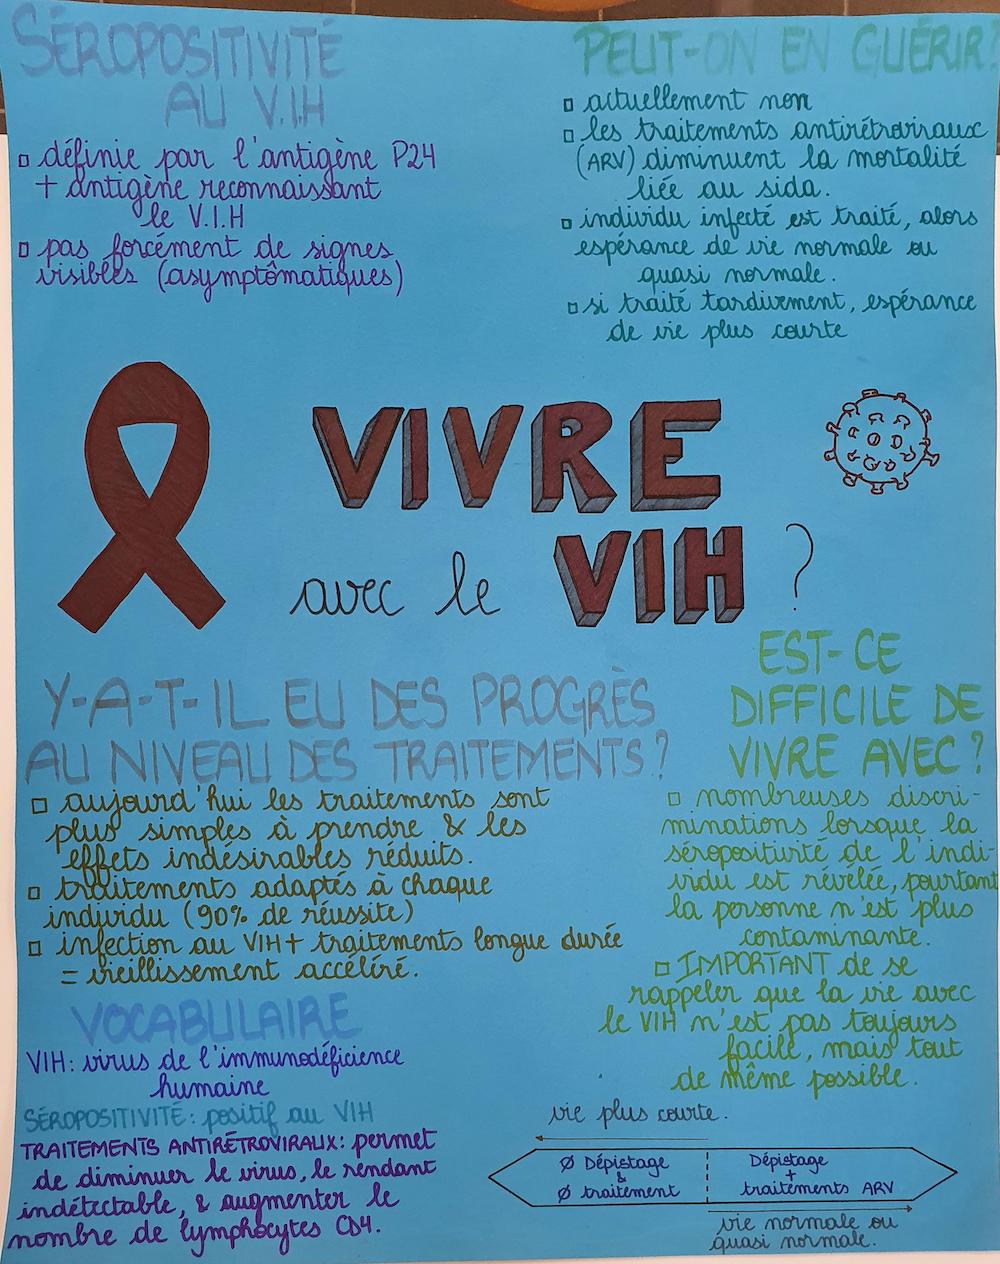 SÉROPOSITIVITÉ
AU V.I.H
définie par l'antigène P24
+ antigène reconnaissant
le V.I.H
pas forcément de signes
visibles (asymptômatiques)
PEUT-ON EN GUÉRIR?
actuellement non
les traitements antirétroviraux
(ARV) diminuent la mortalité
liée au sida.
individu infecté est traité, alors
espérance de vie normale ou
quasi normale.
si traité tardivement, espérance
de vie plus courte
VIVRE
avec le VIH ?
Y-A-T-IL EU DES PROGRÈS
AU NIVEAU DES TRAITEMENTS ?
aujourd'hui les traitements sont
plus simples à prendre & les
effets indésirables réduits.
traitements adaptés à chaque
individu (90% de réussite)
infection au VIH + traitements longue durée
= vieillissement accéléré.
EST-CE
DIFFICILE DE
VIVRE AVEC ?
nombreuses discri-
minations lorsque la
séropositivité de l'indi-
vidu est révélée, pourtant
la personne n'est plus
contaminante.
IMPORTANT de se
rappeler que la vie avec
le VIH n'est pas toujours
facile, mais tout
de même possible.
VOCABULAIRE
VIH: virus de l'immunodéficience
humaine
SÉROPOSITIVITÉ: positif au VIH
TRAITEMENTS ANTIRÉTROVIRAUX: permet
de diminuer le virus, le rendant
indétectable, & augmenter le
nombre de lymphocytes CD4.
vie plus courte.
Ø Dépistage
&
Ø traitement
Dépistage
+
traitements ARV
vie normale ou
quasi normale.